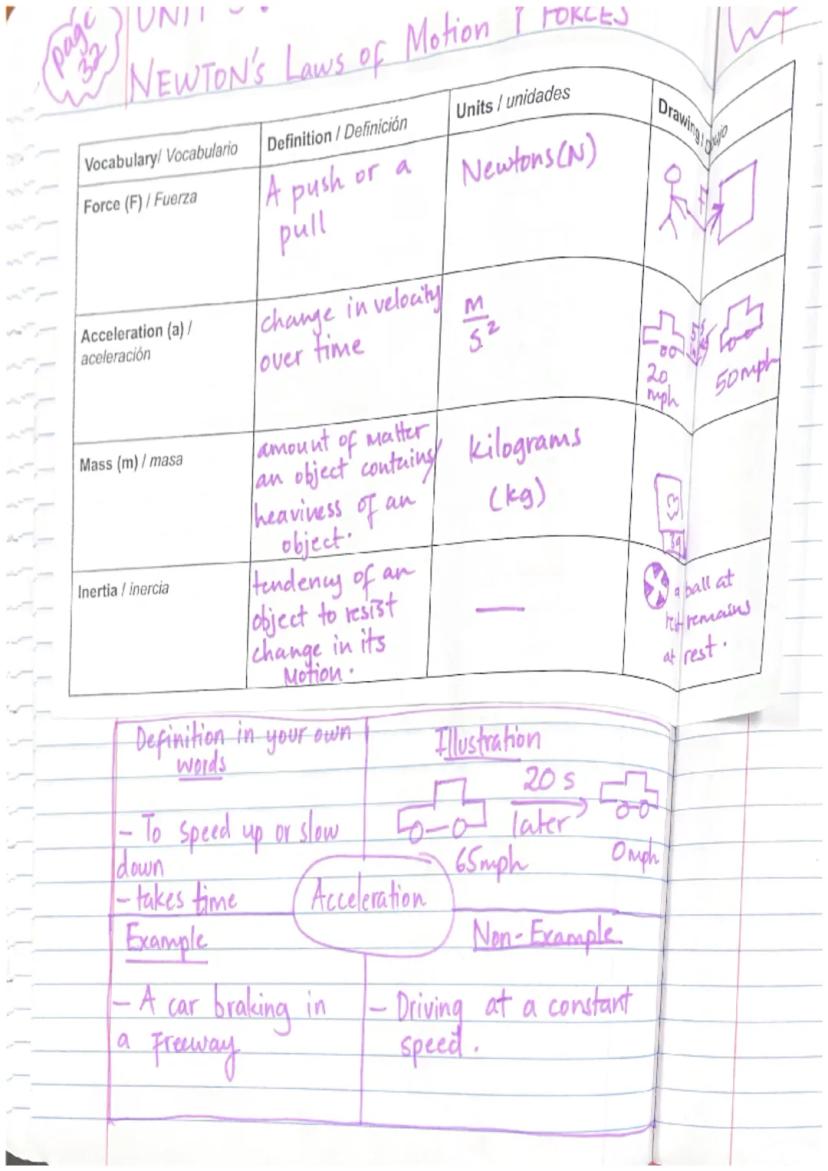 page
32
UNIT 3:
NEWTON's Laws of Motion & FORCES
Vocabulary/ Vocabulario
Definition / Definición
Units / unidades
Drawing /
Force (F) / Fuerza
A push or a
pull
Newtons(N)
F
Acceleration (a) /
aceleración
change in velocity
over time
m
s²
20
mph
50mph
Mass (m) / masa
amount of matter
an object contains/
heaviness of an
object.
kilograms
(kg)
Inertia / inercia
tendency of an
object to resist
change in its
Motion.
—
a ball at
rest remains
at rest.
Definition in your own
words
- To speed up or slow
down
- takes time
Illustration
20 s
later
65mph
0mph
Acceleration
Example
- A car braking in
a Freeway
Non-Example
- Driving at a constant
speed.